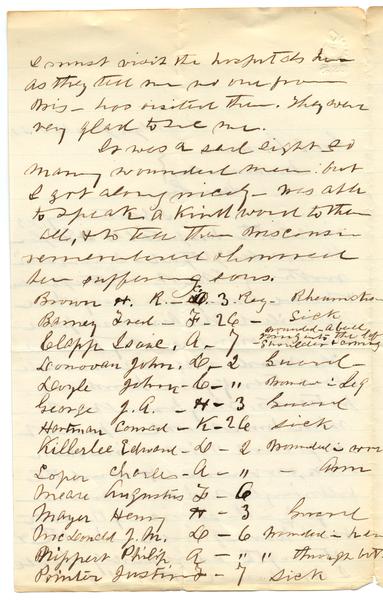 I must visit the hospitals here
as they tell me no one from
Wis- has visited them. They were
very glad to see me.
It was a sad sight so
many wounded men. but
I got along nicely - was able
to speak a kind word to them
all, & to tell them Wisconsin
remembered & honored
her suffering sons.
Brown H. R. - 3. Reg - Rheumatism
Barney Fred - F - 26 - Sick
Clapp Isaac, A - 7 wounded - a ball
going into the left
shoulder & coming
Donovan John, D - 2 Guard -
Doyle John - C - " Wound in Leg
George J. A. - H - 3 Guard
Hartman Conrad - K - 26 Sick
Killerlee Edward - D - 2. Wounded in
Loper Charles - A - " - Arm
Meare Augustus F - 6
Mayer Henry H - 3 Guard
McDonald J. M. D - 6 Wounded in
Nippert Philip A - " " through both
Pointer Justin F - 7 Sick